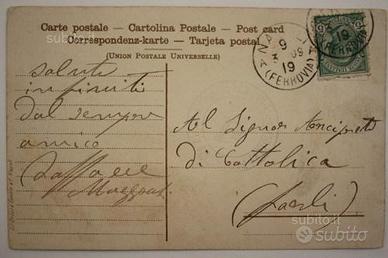 Carte postale - Cartolina Postale - Post card
Correspondenz-karte - Tarjeta postal
(UNION POSTALE UNIVERSELLE)
9
19
(FERROVIA)
19
(FERROVIA)
salute
infiniti
dal sempre
amico
Raffaele
Al Signor Arciprete
di Cattolica
(Forlì)
subito.it
subito